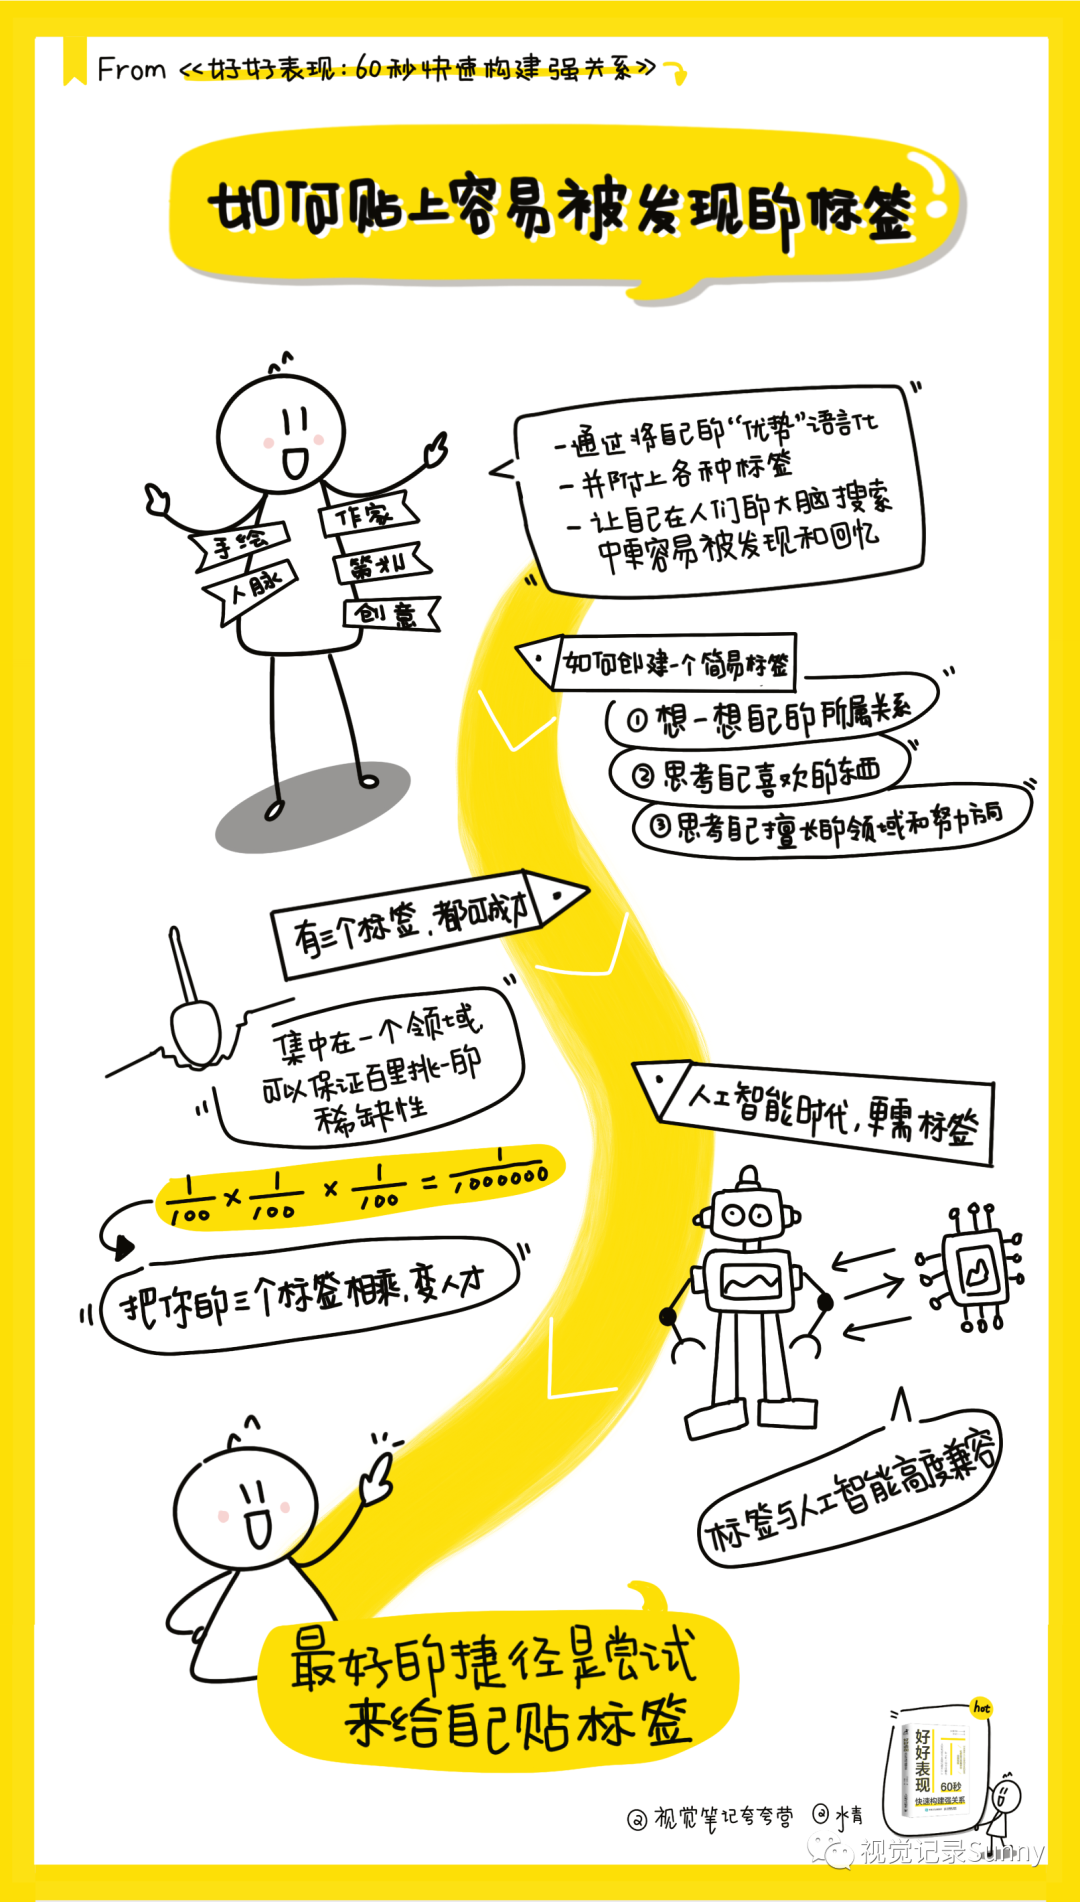 From《好好表现：60秒快速构建强关系》
如何贴上容易被发现的标签
-通过将自己的“优势”语言化
-并附上各种标签
-让自己在人们的大脑搜索
中更容易被发现和回忆
手绘
人脉
作家
策划
创意
如何创建一个简易标签
①想一想自己的所属关系
②思考自己喜欢的东西
③思考自己擅长的领域和努力方向
有三个标签,都可成才
集中在一个领域,
可以保证百里挑一的
稀缺性
1/100 × 1/100 × 1/100 = 1/1000000
把你的三个标签相乘,变人才
人工智能时代,更需标签
标签与人工智能高度兼容
最好的捷径是尝试
来给自己贴标签
hot
好好表现
60秒
快速构建强关系
@视觉笔记夸夸营 @水青
视觉记录Sunny